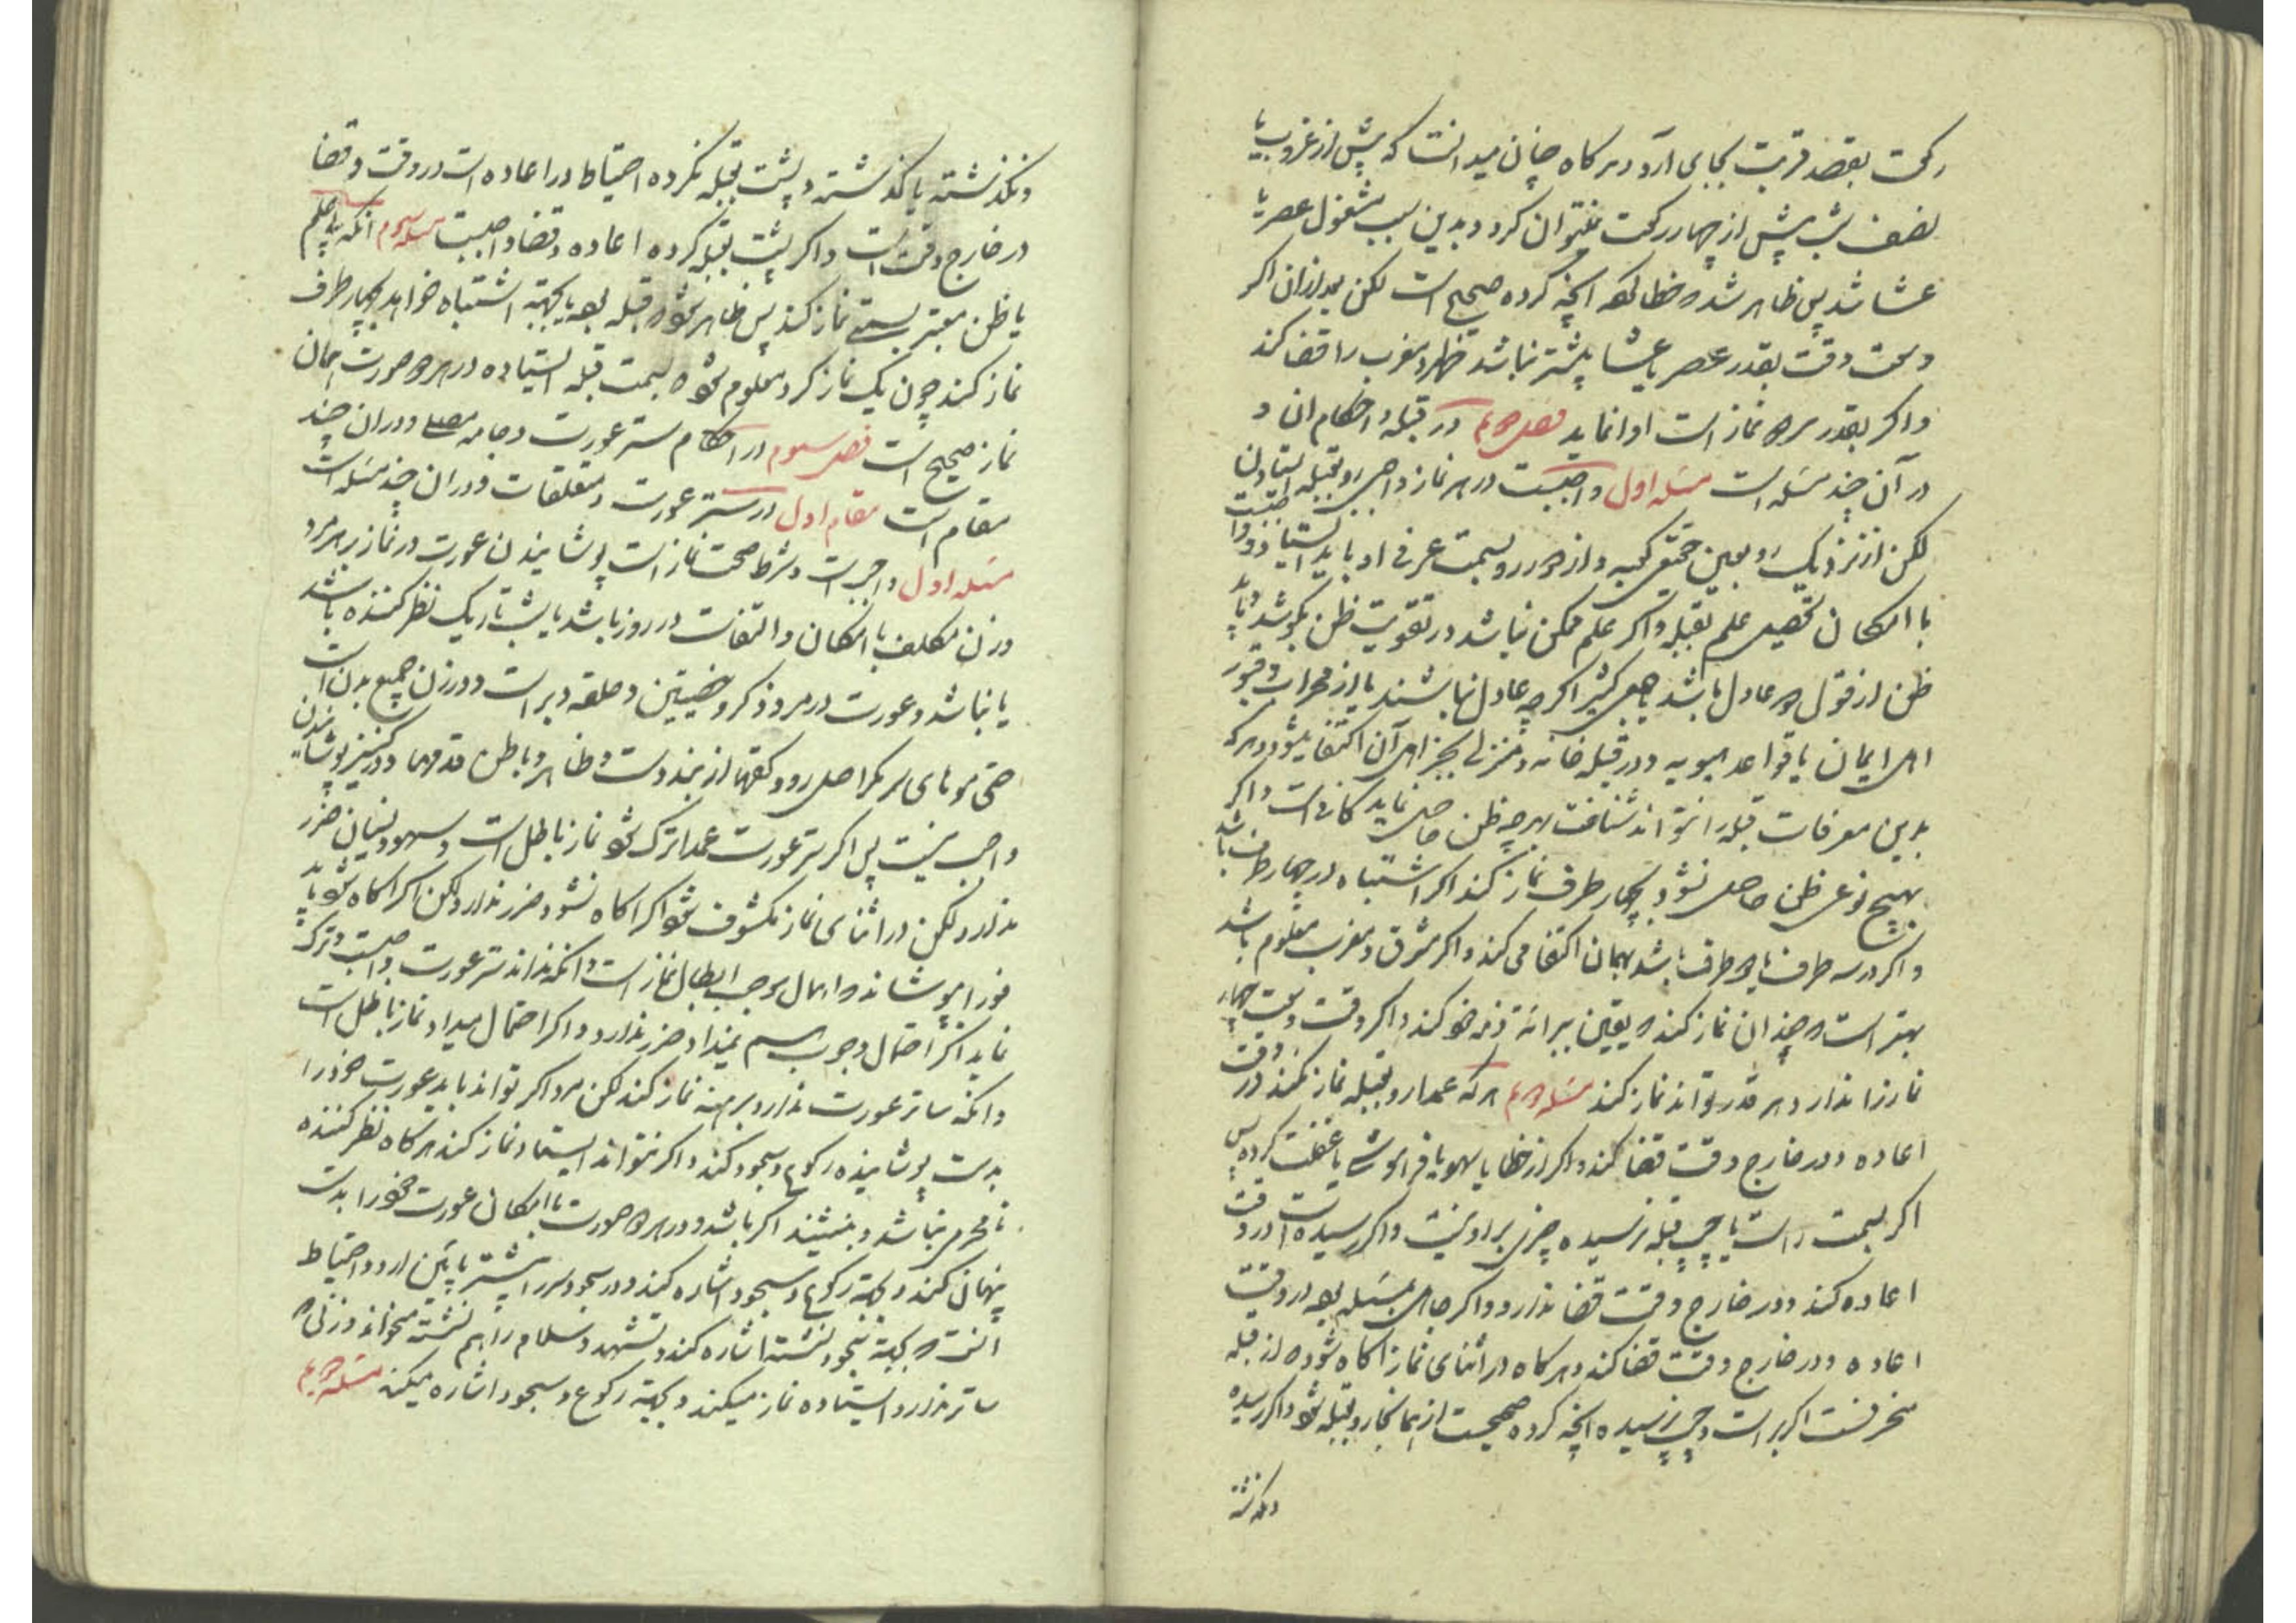 رکعت بقصد قربت بجای آرد و هرگاه چنان میدانست که پیش از غروب یا
نصف شب پیش از چهار رکعت نمیتوان کرد و بدین سبب مشغول عصر یا
عشا شد پس ظاهر شد که خطا کرده انچه کرده صحیح است لکن بعد از ان اگر
وسعت وقت بقدر عصر یا عشا بیشتر نباشد ظهر و مغرب را قضا کند
و اگر بقدر هر دو نماز است ادا نماید فصل دویم در قبله و احکام ان و
در آن چند مسئله است مسئله اول واجبست در هر نماز واجبی رو بقبله ایستادن
لکن از نزدیک رو بعین حقیقی کعبه و از دور رو بسمت عرفی او باید ایستاد و واجبست
با امکان تحصیل علم بقبله و اگر علم ممکن نباشد در تقویت ظن بکوشد و باید
ظن از قول دو عادل باشد یا جمعی کثیر اگر چه عادل نباشند یا از محراب و قبور
اهل ایمان یا قواعد هیویه و در قبله خانه و منزلی بخبر اهل آن اکتفا میشود و هر که
بدین معرفات قبله را نتواند شناخت بهر چه ظن حاصل نماید کافی است و اگر
بهیچ نوعی ظن حاصل نشود بچهار طرف نماز کند اگر اشتباه در چهار طرف باشد
و اگر در سه طرف یا دو طرف باشد بهمان اکتفا می کند و اگر مشرق و مغرب معلوم باشد
بهتر است که چندان نماز کند که یقین ببرائة ذمه خود کند و اگر وقت وسعت چهار
نماز را ندارد هر قدر تواند نماز کند مسئله دویم هر که عمدا رو بقبله نماز نکند در وقت
اعاده و در خارج وقت قضا کند و اگر از خطا یا سهو یا فراموشی یا غفلت کرده پس
اگر بسمت راست یا چپ قبله نرسیده چیزی بر او نیست و اگر رسیده است در وقت
اعاده کند و در خارج وقت قضا ندارد و اگر جاهل بمسئله بوده در وقت
اعاده و در خارج وقت قضا کند و هرگاه در اثنای نماز اگاه شود که از قبله
منحرفست اگر براست و چپ نرسیده انچه کرده صحیحست از همانجا رو بقبله شود و اگر رسیده
و نگذشته
و نگذشته یا گذشته و پشت بقبله نکرده احتیاط در اعاده است در وقت و قضا
در خارج وقت است و اگر پشت بقبله کرده اعاده و قضا واجبست مسئله سیوم انکه با علم
یا ظن معتبر بسمتی نماز کند پس ظاهر شود که قبله بوده یا بجهة اشتباه خواهد بچهار طرف
نماز کند چون یک نماز کرد معلوم شود که بسمت قبله ایستاده در هر دو صورت همان
نماز صحیح است فصل سیوم در احکام ستر عورت و جامه مصلی و در ان چند
مقام است مقام اول در ستر عورت و متعلقات و در ان چند مسئله است
مسئله اول واجب است و شرط صحت نماز است پوشانیدن عورت در نماز بر هر مرد
و زن مکلف با امکان و التفات در روز باشد یا شب تاریک نظر کننده باشد
یا نباشد و عورت در مرد ذکر و خصیتین و حلقه دبر است و در زن جمیع بدن است
حتی موهای سر مگر اصل رو و کفها از بند دست و ظاهر و باطن قدمها و در کنیز پوشانیدن
واجب نیست پس اگر ستر عورت عمدا ترک شود نماز باطل است و سهو و نسیان ضرر
ندارد لکن در اثنای نماز مکشوف شود اگر اگاه نشود ضرر ندارد لکن اگر اگاه شود باید
فورا بپوشاند و اهمال موجب ابطال نماز است و انکه نداند ستر عورت واجبست و ترک
نماید اگر احتمال وجوب هم نمیداد ضرر ندارد و اگر احتمال میداد نماز باطل است
و انکه ساتر عورت ندارد برهنه نماز کند لکن مرد اگر تواند باید عورت خود را
بدست پوشانیده رکوع و سجود کند و اگر نتواند ایستاده نماز کند هرگاه نظر کننده
نامحرمی نباشد و بنشیند اگر باشد و در هر دو صورت با امکان عورت خود را بدست
پنهان کند و بجهة رکوع و سجود اشاره کند و در سجود سر را بیشتر پایین ارد و احتیاط
انست که بجهة سجود نشسته اشاره کند و تشهد و سلام را هم نشسته بخواند و زنی که
ساتر ندارد ایستاده نماز میکند و بجهة رکوع و سجود اشاره میکند مسئله دویم